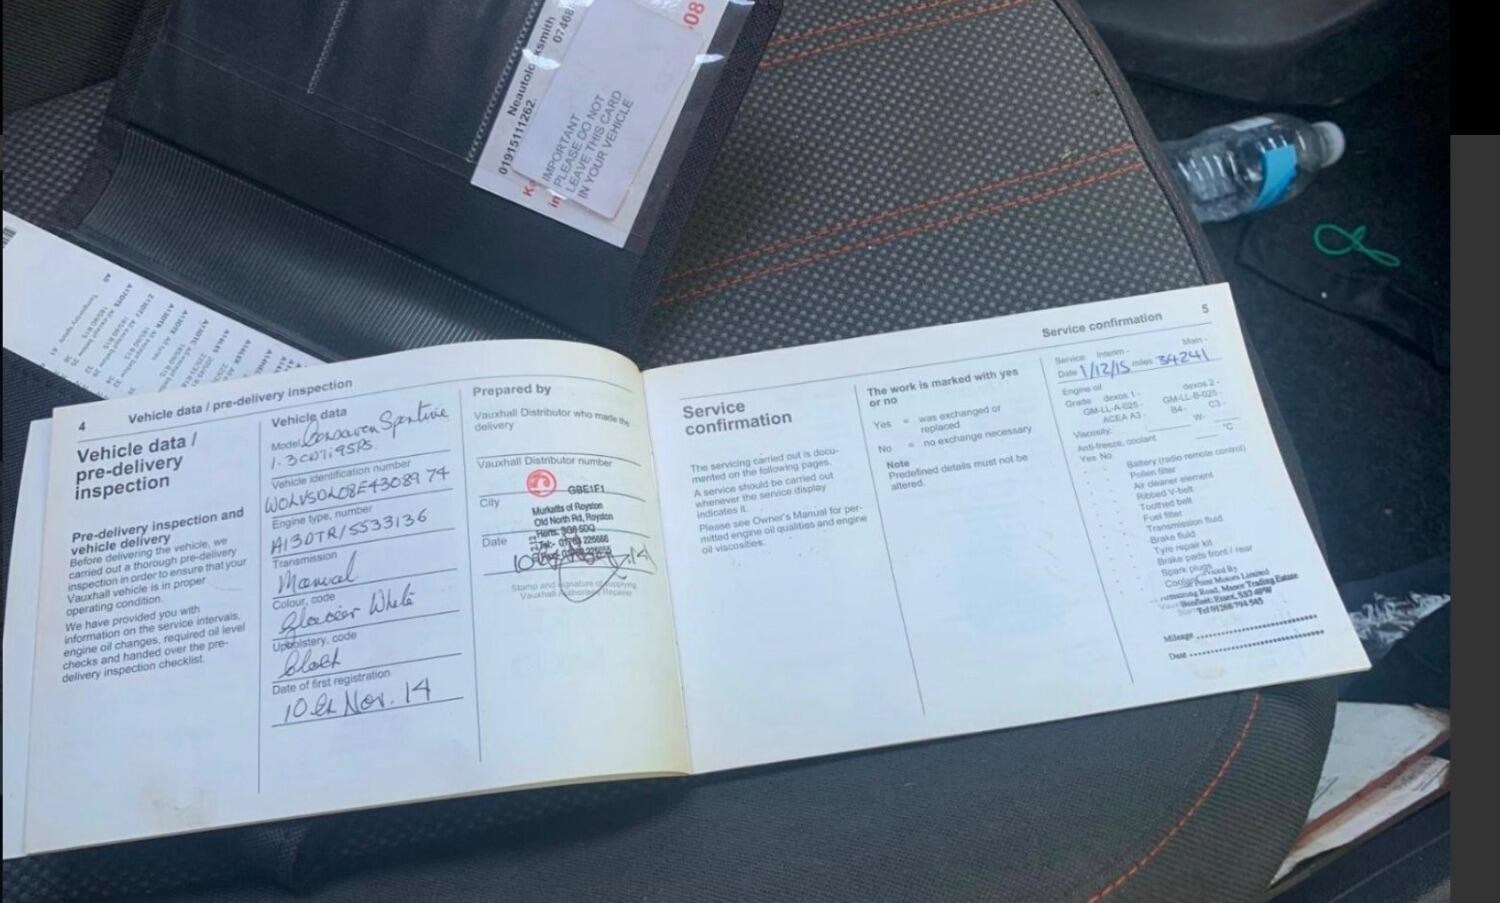 Neautolocksmith
01915111262. 07468
08
IMPORTANT
PLEASE DO NOT
LEAVE THIS CARD
IN YOUR VEHICLE
4 Vehicle data / pre-delivery inspection
Vehicle data /
pre-delivery
inspection
Pre-delivery inspection and
vehicle delivery
Before delivering the vehicle, we
carried out a thorough pre-delivery
inspection in order to ensure that your
Vauxhall vehicle is in proper
operating condition.
We have provided you with
information on the service intervals,
engine oil changes, required oil level
checks and handed over the pre-
delivery inspection checklist.
Vehicle data
Model
1.3CDTi 95PS
Vehicle identification number
W0LVS0L08E4308974
Engine type, number
A130TR/5533136
Transmission
Manual
Colour, code
Glacier White
Upholstery, code
Cloth
Date of first registration
10th Nov. 14
Prepared by
Vauxhall Distributor who made the
delivery
Vauxhall Distributor number
GBE1F1
City
Murketts of Royston
Old North Rd, Royston
Herts. SG8 5DQ
Date
Stamp and signature of supplying
Vauxhall Authorised Repairer
Service confirmation 5
Service
confirmation
The servicing carried out is docu-
mented on the following pages.
A service should be carried out
whenever the service display
indicates it.
Please see Owner's Manual for per-
mitted engine oil qualities and engine
oil viscosities.
The work is marked with yes
or no
Yes = was exchanged or
replaced
No = no exchange necessary
Note
Predefined details must not be
altered.
Service: Interim - Main -
Date 1/12/15 miles 34241
Engine oil
Grade: dexos 1 - dexos 2 -
GM-LL-A-025 - GM-LL-B-025 -
ACEA A3 - B4- C3 -
Viscosity: W-
Anti-freeze, coolant °C
Yes No
Battery (radio remote control)
Pollen filter
Air cleaner element
Ribbed V-belt
Toothed belt
Fuel filter
Transmission fluid
Brake fluid
Tyre repair kit
Brake pads front / rear
Spark plugs
Point Motors Limited
Road, Manor Trading Estate
Benfleet, Essex, SS7 4PW
Tel 01268 794 545
Mileage
Date